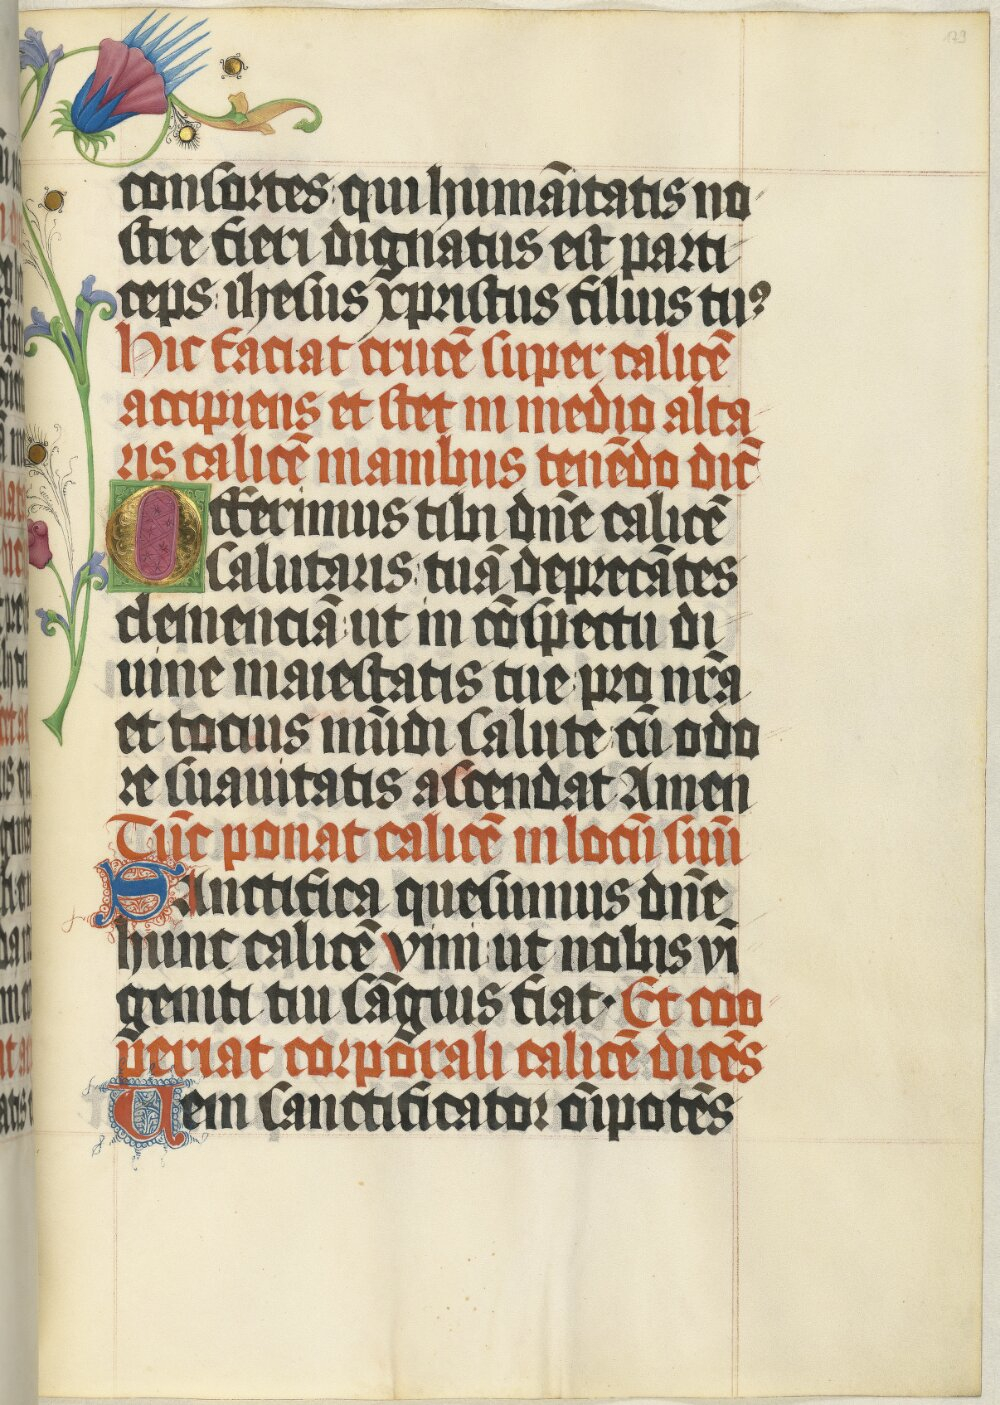 179
consortes: qui humāitatis no
stre fieri dignatus est parti
ceps: ihesus xp̄ristus filius tu⁹
Hic faciat crucē super calicē
accipiens et stet in medio alta
ris calicē manibus tenēdo dic̄
Offerimus tibi dn̄e calicē
salutaris: tuā deprecātes
clemenciā: ut in cōspectu di
uine maiestatis tue: pro nr̄a
et tocius mūdi salute cū odo
re suauitatis ascendat Amen
Tūc ponat calicē in locū suū
Sanctifica quesumus dn̄e
hunc calicē vini: ut nobis vī
geniti tui sāguis fiat· Et coo
periat corporali calicē dicēs
Uem sanctificator oīpotēs